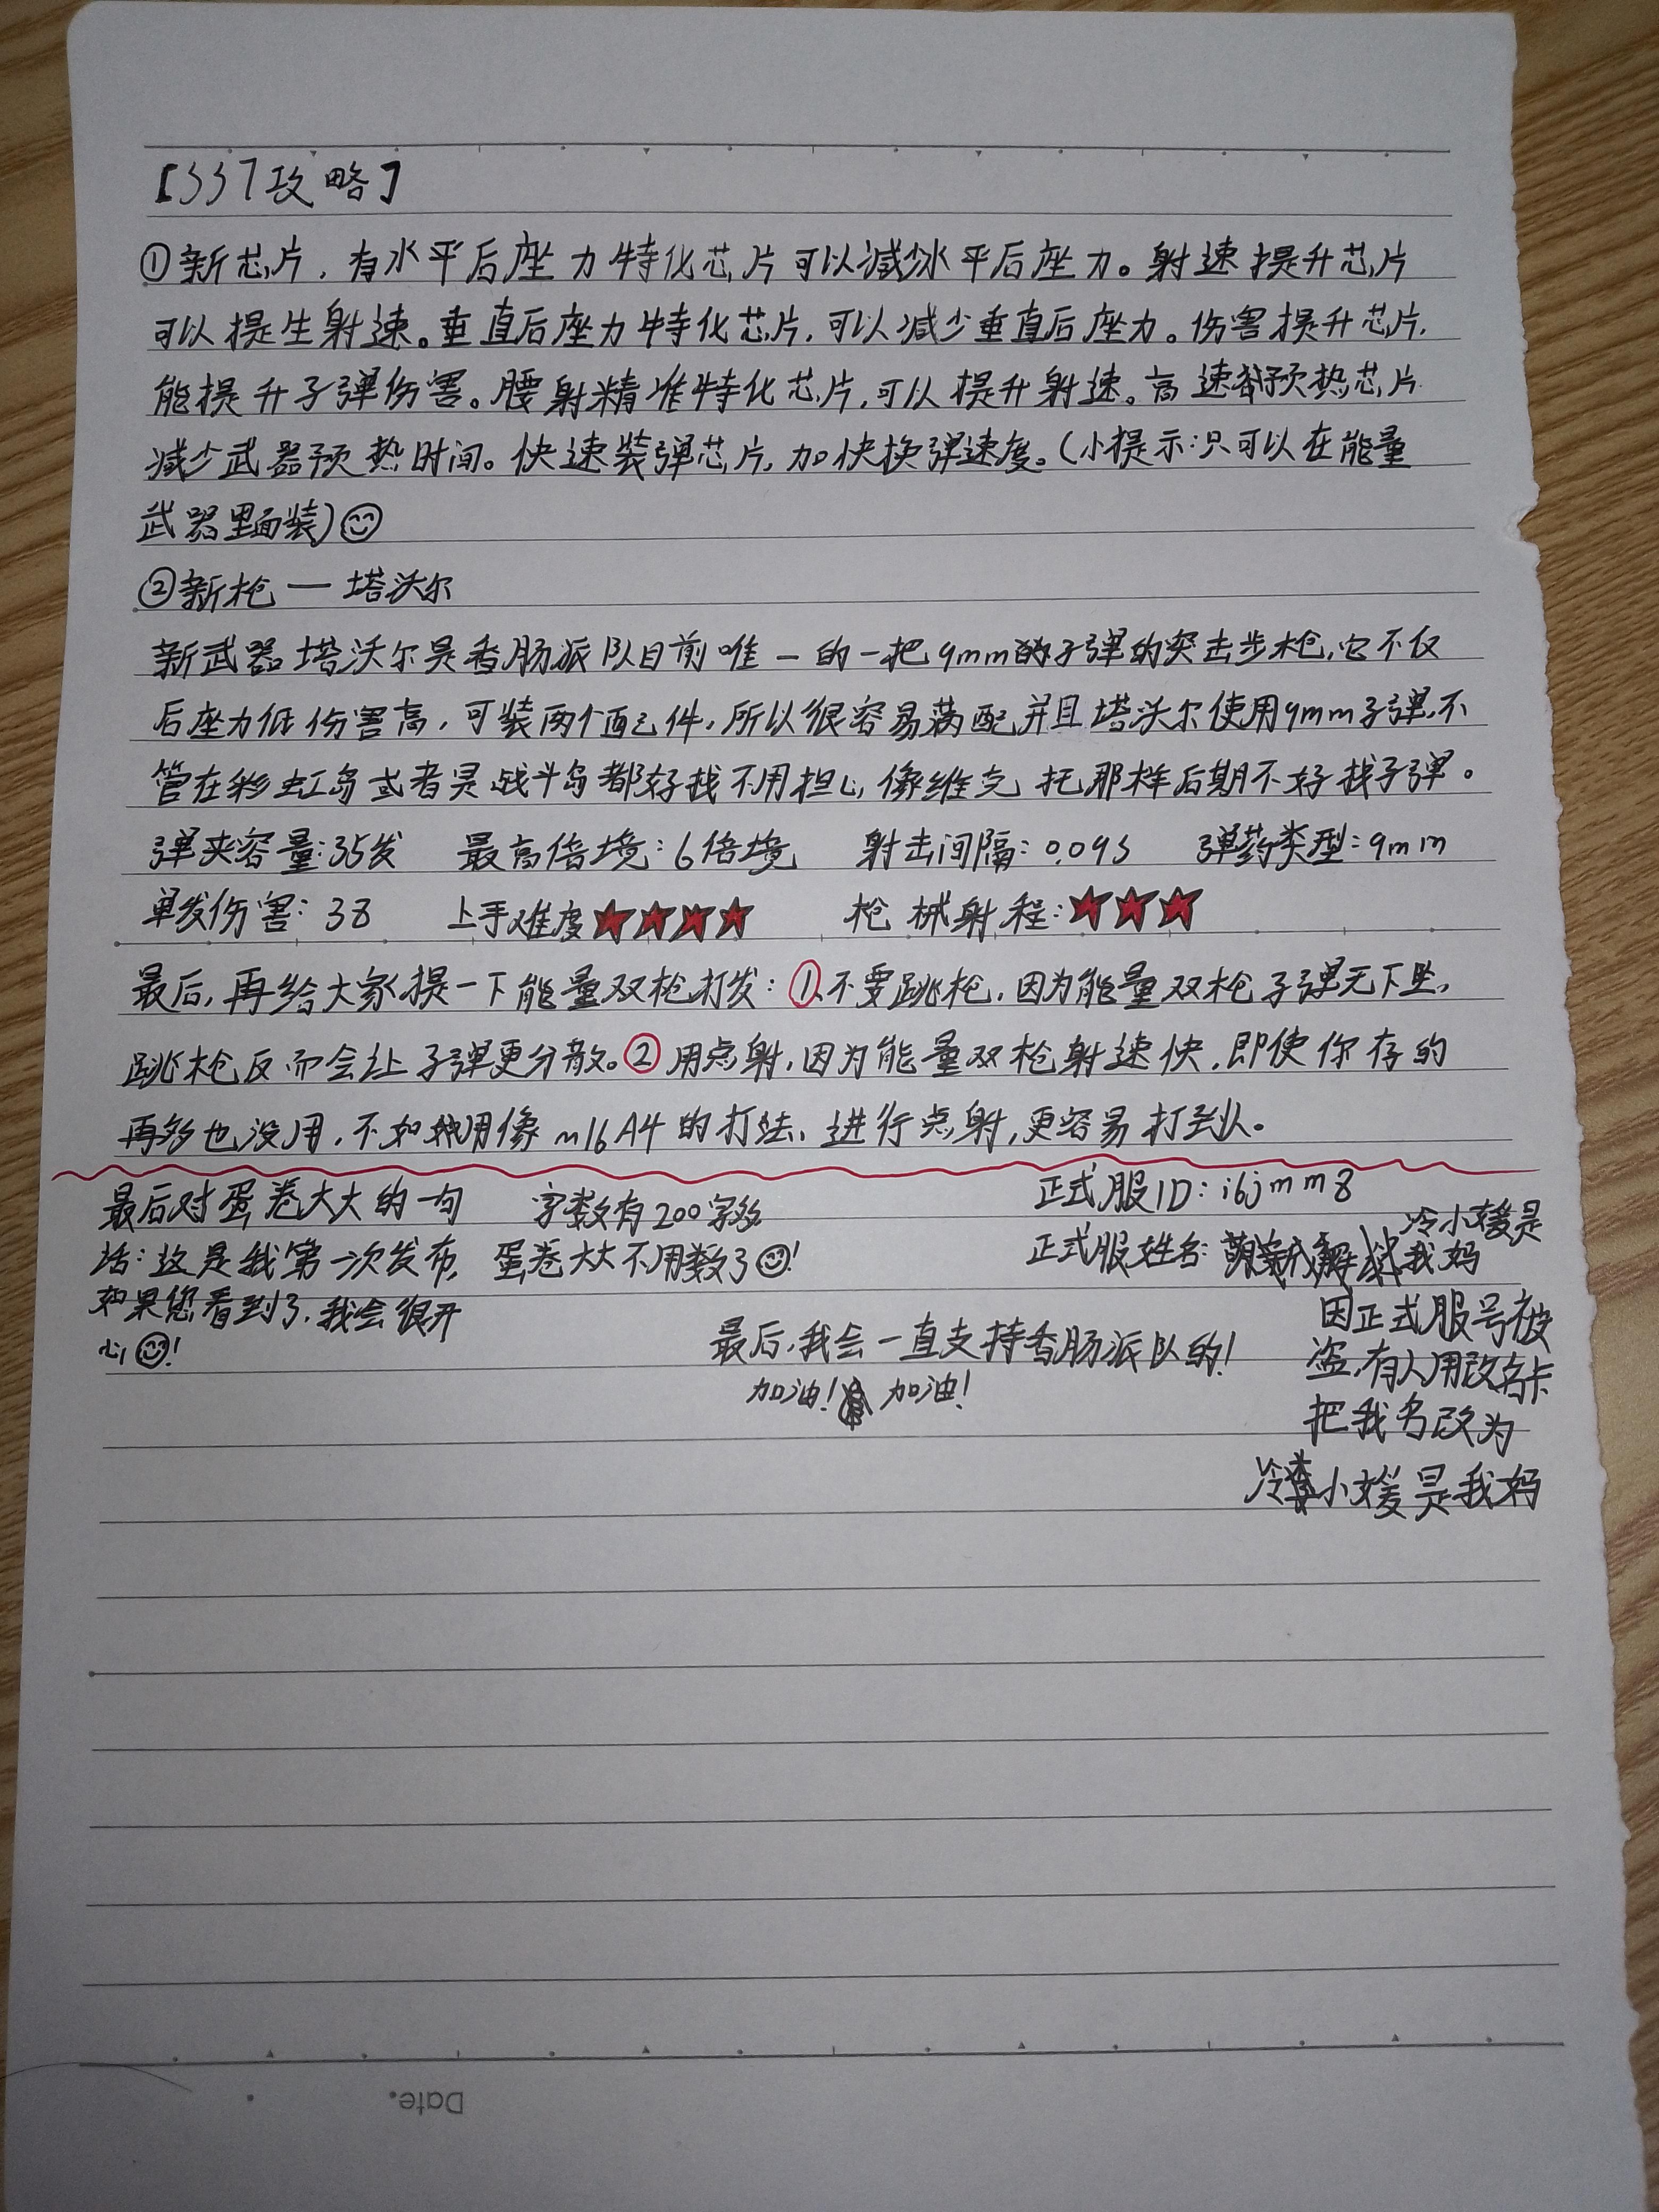 【SS7攻略】
①新芯片，有水平后座力特化芯片可以减少水平后座力。射速提升芯片
可以提生射速。垂直后座力特化芯片，可以减少垂直后座力。伤害提升芯片，
能提升子弹伤害。腰射精准特化芯片，可以提升射速。高速预热芯片
减少武器预热时间。快速装弹芯片，加快换弹速度。（小提示：只可以在能量
武器里面装）
②新枪一塔沃尔
新武器塔沃尔是香肠派队目前唯一的一把9mm的子弹的突击步枪，它不仅
后座力低伤害高，可装两个配件，所以很容易满配并且塔沃尔使用9mm子弹，不
管在彩虹岛或者灵战斗岛都好找不用担心像维克托那样后期不好找子弹。
弹夹容量：35发 最高倍境：6倍境 射击间隔：0.09s 弹药类型：9mm
单发伤害：38 上手难度★★★★ 枪械射程：★★★
最后，再给大家提一下能量双枪打发：①不要跳枪，因为能量双枪子弹无下坠，
跳枪反而会让子弹更分散。②用点射，因为能量双枪射速快，即使你存的
再多也没用，不如用像m16A4的打法，进行点射，更容易打到人。
最后对蛋卷大大的一句
话：这是我第一次发布，
如果您看到了，我会很开
心！
字数有200字多
蛋卷大大不用数了！
正式服ID：i6jmm8
正式服姓名：冷小媛是
我妈
因正式服号被
盗，有人用改名卡
把我名改为
冷小媛是我妈
最后，我会一直支持香肠派队的！
加油！加油！
Date.